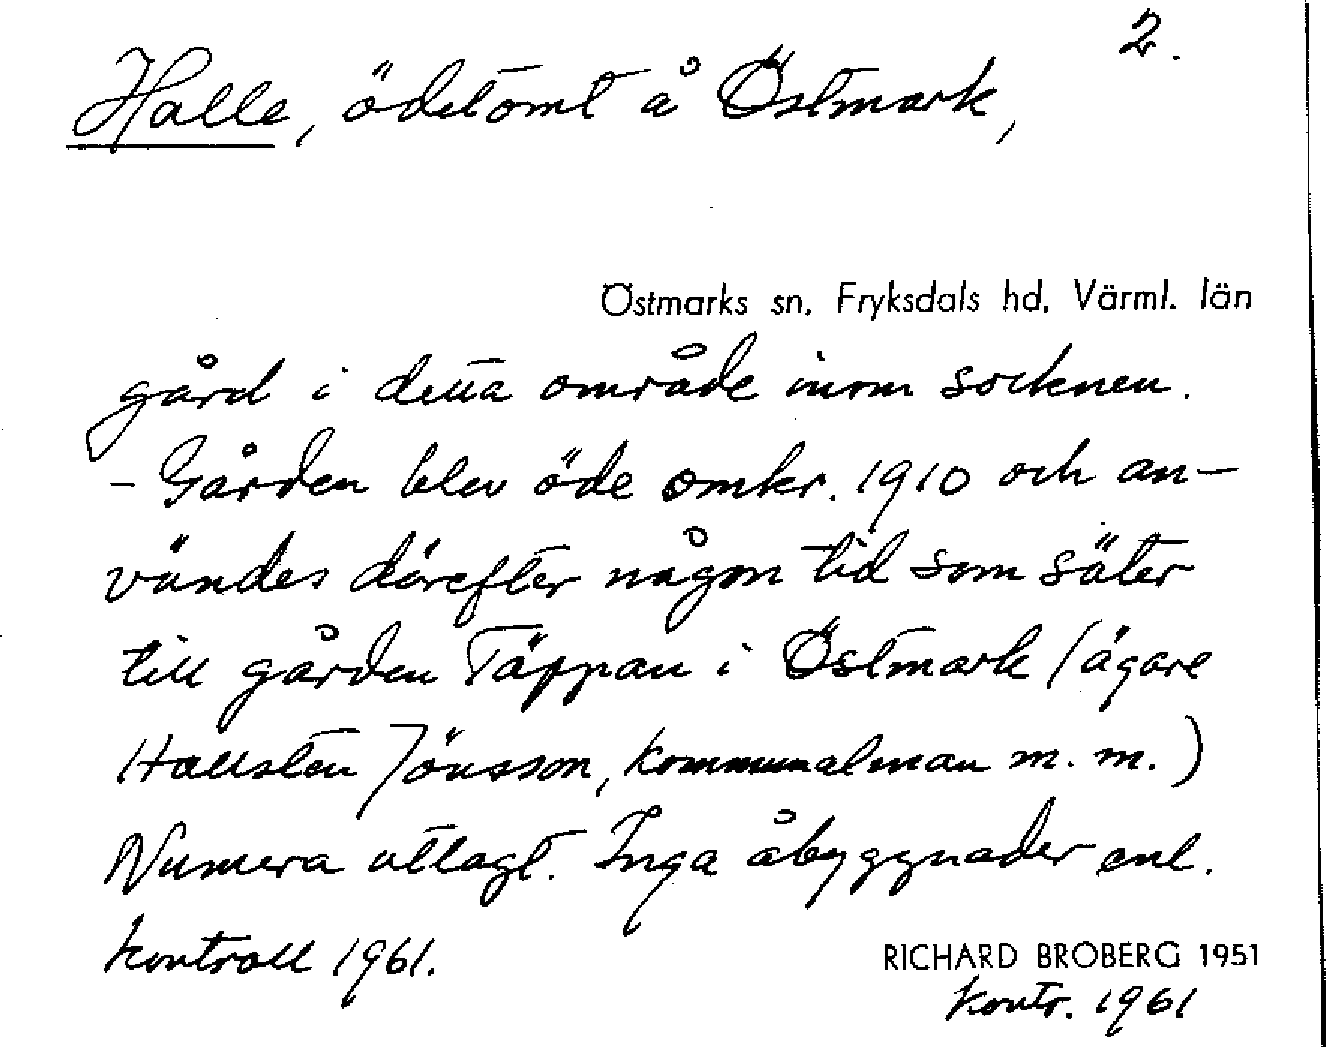 2.
Halle, ödetomt å Östmark,
Östmarks sn, Fryksdals hd, Värml. län
gård i detta område inom socknen.
- Gården blev öde omkr. 1910 och an-
vändes därefter någon tid som säter
till gården Täppan i Östmark (ägare
Hallsten Jönsson, kommunalman m. m.)
Numera utlagt. Inga åbyggnader enl.
kontroll 1961.
RICHARD BROBERG 1951
Kontr. 1961